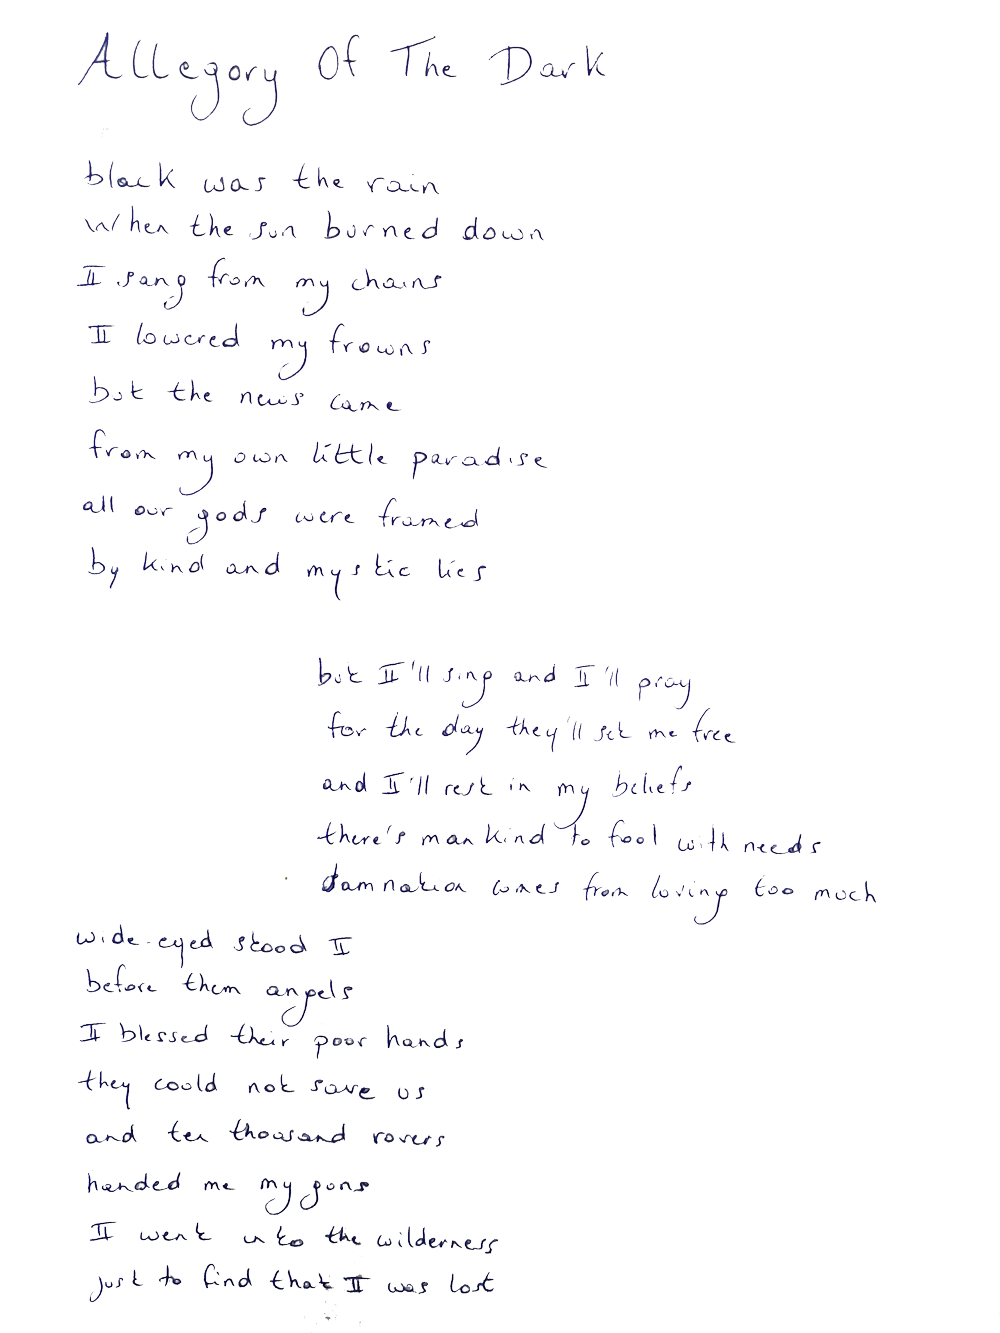 Allegory Of The Dark
black was the rain
When the sun burned down
I sang from my chains
I lowered my frowns
but the news came
from my own little paradise
all our gods were framed
by kind and mystic lies
but I'll sing and I'll pray
for the day they'll set me free
and I'll rest in my beliefs
there's mankind to fool with needs
damnation comes from loving too much
wide-eyed stood I
before them angels
I blessed their poor hands
they could not save us
and ten thousand rovers
handed me my guns
I went into the wilderness
just to find that I was lost